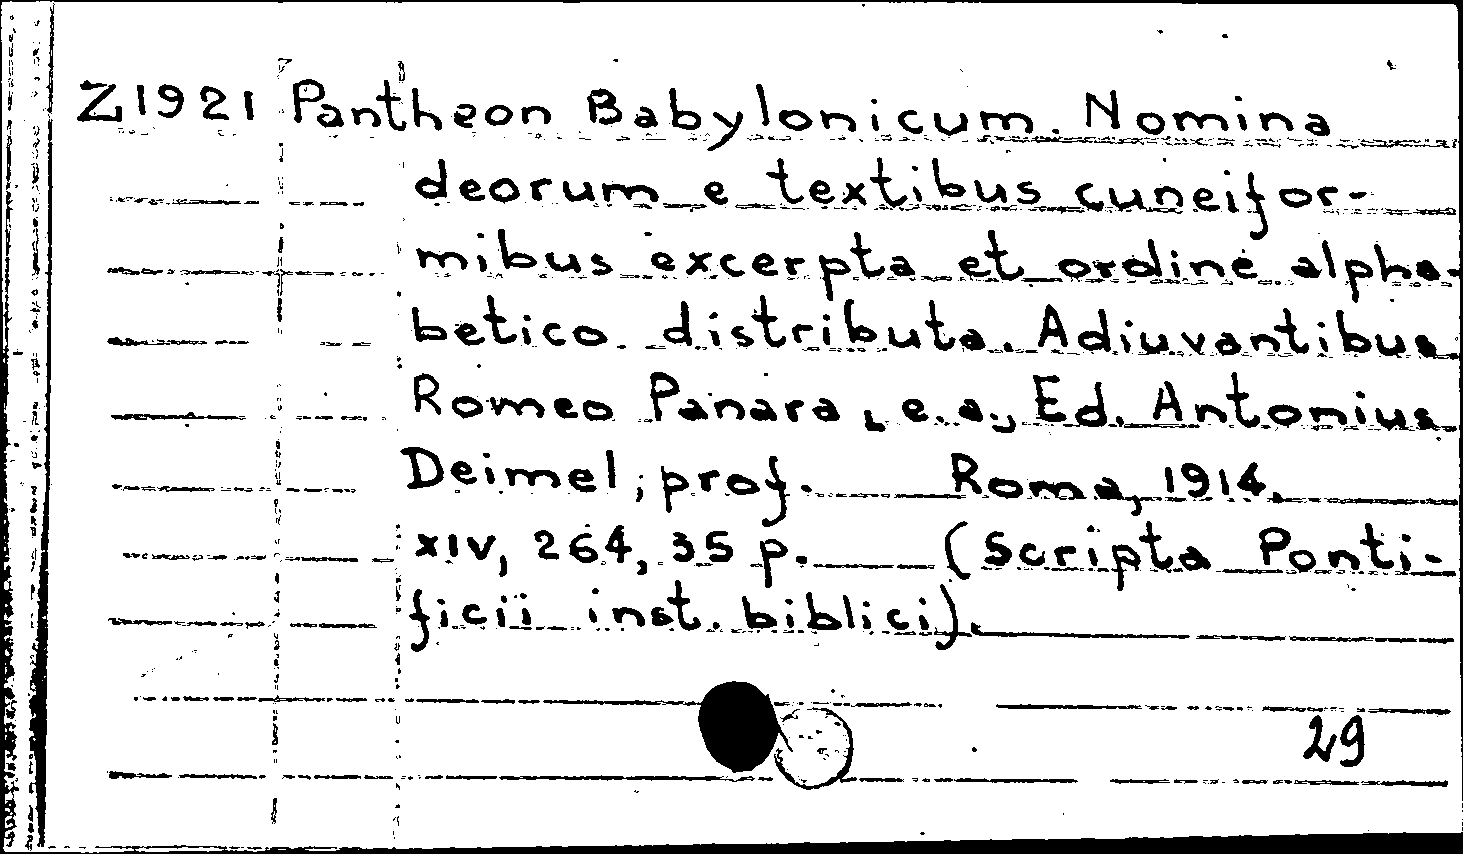 Z1921 Pantheon Babylonicum. Nomina
deorum e textibus cuneifor-
mibus excerpta et ordine alpha-
betico distributa. Adiuvantibus
Romeo Panara, e.a., Ed. Antonius
Deimel, prof. Roma, 1914.
XIV, 264, 35 p. (Scripta Ponti-
ficii inst. biblici).
29